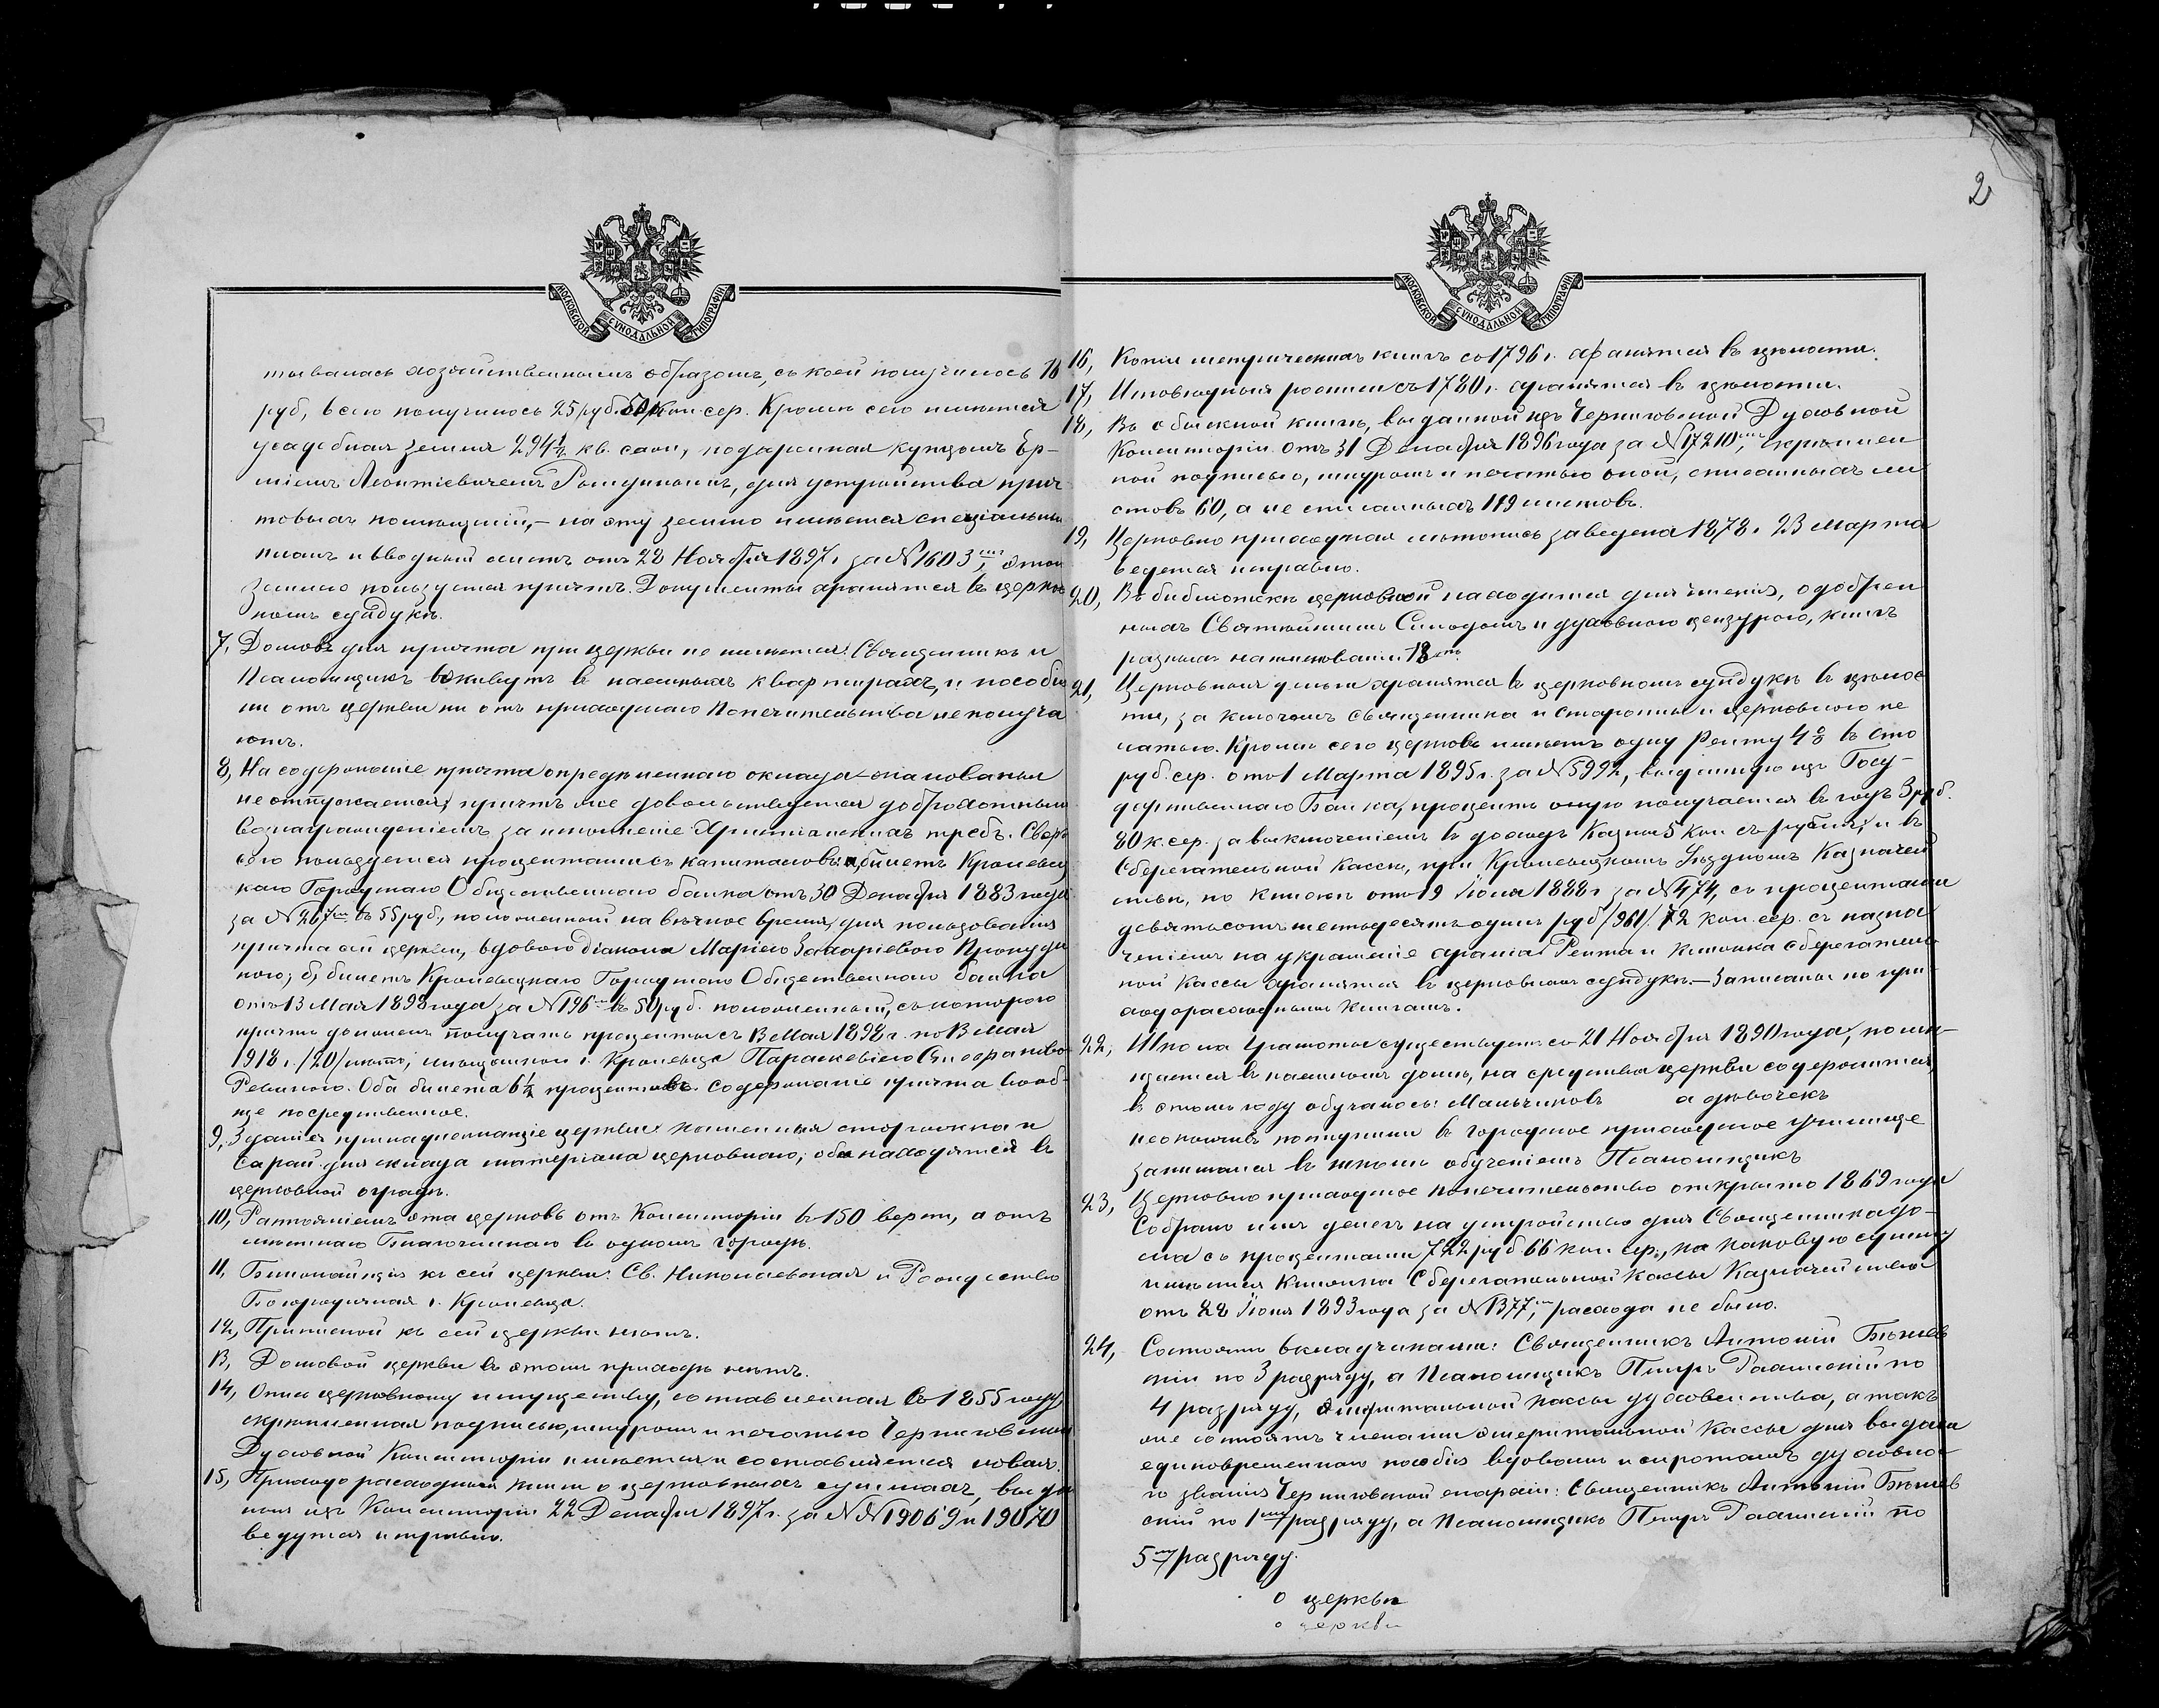 2
МОСКОВСКОЙ СУНОДАЛЬНОЙ ТИПОГРАФІИ
тывалась хозяйственнымъ образомъ, съ коей получилось 16
руб, всего получилось 25 руб. 50 коп. сер. Кромѣ сего имѣется
усадебная земля 294½ кв. саж, подаренная купцомъ Ер-
міемъ Леонтіевичемъ, для устройства прич
товыхъ помѣщеній,- на эту землю имѣется спеціальный
планъ и вводный листъ отъ 28 Ноября 1897 г. за № 1603, этой
землею пользуется причтъ. Документы хранятся въ церков
номъ сундукѣ.
7, Домовъ для причта при церкви не имѣется: Священникъ и
Псаломщикъ живутъ въ наемныхъ квартирахъ, и пособія
ни отъ церкви ни отъ приходскаго Попечительства не получа
ютъ.
8, На содержаніе причта опредѣленнаго оклада жалованья
не отпускается, причтъ же довольствуется доброхотнымъ
вознагражденіемъ за исполненіе Христіанскихъ требъ. Сверхъ
сего пользуется процентами съ капиталовъ: а, билетъ Кролевец
каго Городскаго Общественнаго банка отъ 30 Декабря 1883 года
за № 267 въ 55 руб., положенной на вѣчное время, для пользованія
причта сей церкви, вдовою діакона Маріею Захаріевою
б, билетъ Кролевецкаго Городскаго Общественнаго банка
отъ 13 Мая 1898 года за № 196 въ 50 руб. положенный, съ котораго
причтъ долженъ получать проценты съ 13 Мая 1898 г. по 13 Мая
1918 г. /20/ лѣтъ, мѣщанкой г. Кролевца Параскевіею
Оба билета 6½ процентовъ. Содержаніе причта вооб-
ще посредственное.
9, Зданія принадлежащіе церкви: каменная сторожка и
сарай для склада матеріала церковнаго; оба находятся въ
церковной оградѣ.
10, Разстояніемъ эта церковь отъ Консисторіи въ 150 верст, а отъ
мѣстнаго Благочиннаго въ одномъ городѣ.
11, Ближайшія къ сей церкви: Св. Николаевская и Рождество
Богородичная г. Кролевца.
12, Приписной къ сей церкви нѣтъ.
13, Домовой церкви въ этомъ приходѣ нѣтъ.
14, Опись церковному имуществу, составленная въ 1855 году
скрѣпленная подписью, шнуромъ и печатью Черниговской
Духовной Консисторіи имѣется и составляется новая.
15, Приходо расходныя книги о церковныхъ суммахъ, выдан
ныя изъ Консисторіи 22 Декабря 1897 г. за №№ 19069 и 19070
ведутся исправно.
МОСКОВСКОЙ СУНОДАЛЬНОЙ ТИПОГРАФІИ
16, Копіи метрическихъ книгъ съ 1796 г. хранятся въ цѣлости.
17, Исповѣдныя росписи съ 1780 г. хранятся въ цѣлости.
18, Въ обыскной книгѣ, выданной изъ Черниговской Духовной
Консисторіи отъ 31 Декабря 1896 года за № 17210, скрѣплен
ной подписью, шнуромъ и печатью оной, списанныхъ ли
стовъ 60, а не списанныхъ 119 листовъ.
19, Церковно приходская лѣтопись заведена 1878 г. 23 Марта
ведется исправно.
20, Въ библіотекѣ церковной находится для чтенія, одобрен
ныхъ Святѣйшимъ Синодомъ и духовною цензурою, книгъ
разныхъ наименованій 18.
21, Церковныя деньги хранятся въ церковномъ сундукѣ въ цѣлос
ти, за ключомъ священника и старосты и церковною пе
чатью. Кромѣ сего церковь имѣетъ одну Ренту 4% въ сто
руб. сер. ото 1 Марта 1895 г. за № 5992, выданную изъ Госу-
дарственнаго Банка, процентъ оную получается въ годъ 3 руб.
80 к. сер. за выключеніемъ въ доходъ Казны 5 коп съ рубля, и въ
Сберегательной кассѣ, при Кролевецкомъ Уѣздномъ Казначей
ствѣ, по книжкѣ ото 19 Іюля 1888 г за № 474, съ процентами
девятьсотъ шестьдесятъ одинъ руб /961/ 72 коп. сер. съ назна
ченіемъ на украшеніе храма. Рента и книжка сберегатель
ной кассы хранятся въ церковномъ сундукѣ.- Записаны по при-
ходорасходнымъ книгамъ.
22, Школа Грамоты существуетъ съ 21 Ноября 1890 года, помѣ-
щается въ наемномъ домѣ, на средства церкви содержится
въ этомъ году обучалось: Мальчиковъ а дѣвочекъ
неокончивъ поступили въ городское приходское училище
занимался въ школѣ обученіемъ Псаломщикъ
23, Церковно приходское попечительство открыто 1869 года
Собрано имъ денегъ на устройство для Священника до-
ма съ процентами 722 руб. 66 коп. сер., на каковую сумму
имѣется книжка Сберегательной кассы Казначейства
отъ 28 Іюня 1893 года за № 1377, расхода не было.
24, Состоятъ вкладчиками: Священникъ Антоній
по 3 разряду, а Псаломщикъ Петръ по
4 разряду, эмеритальной кассы духовенства, а так
же состоятъ членами эмеритальной кассы для выдачи
единовременнаго пособія вдовамъ и сиротамъ духовна
го званія Черниговской епархіи: Священникъ Антоній
по 1му разряду, а Псаломщикъ Петръ по
5му разряду.
о церкви
о церкви